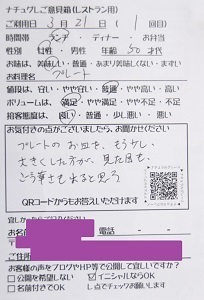 ナチュグレご意見箱(レストラン用)
ご利用日 3月21日 ( 1 回目)
時間帯 ランチ・ディナー・お弁当
性別 男性・女性 年齢 50 才代
お味は 美味しい・普通・あまり美味しくない・まずい
お料理名 プレート
値段は、安い・やや安い・普通・やや高い・高い
ボリュームは 満足・やや満足・普通・やや不足・不足
接客態度は、良い・普通・やや悪い・悪い
お気付きの点がございましたら、お聞かせください
プレートのお皿を、もう少し
大きくした方が、見た目も
QRコードからもお答えいただけます
お名前 電話 - -
〒
ご住所
お客様の声をブログやHP等で公開して宜しいですか?
□公開を希望しない □イニシャルならOK
□名前付きでOK し点でチェックお願いします